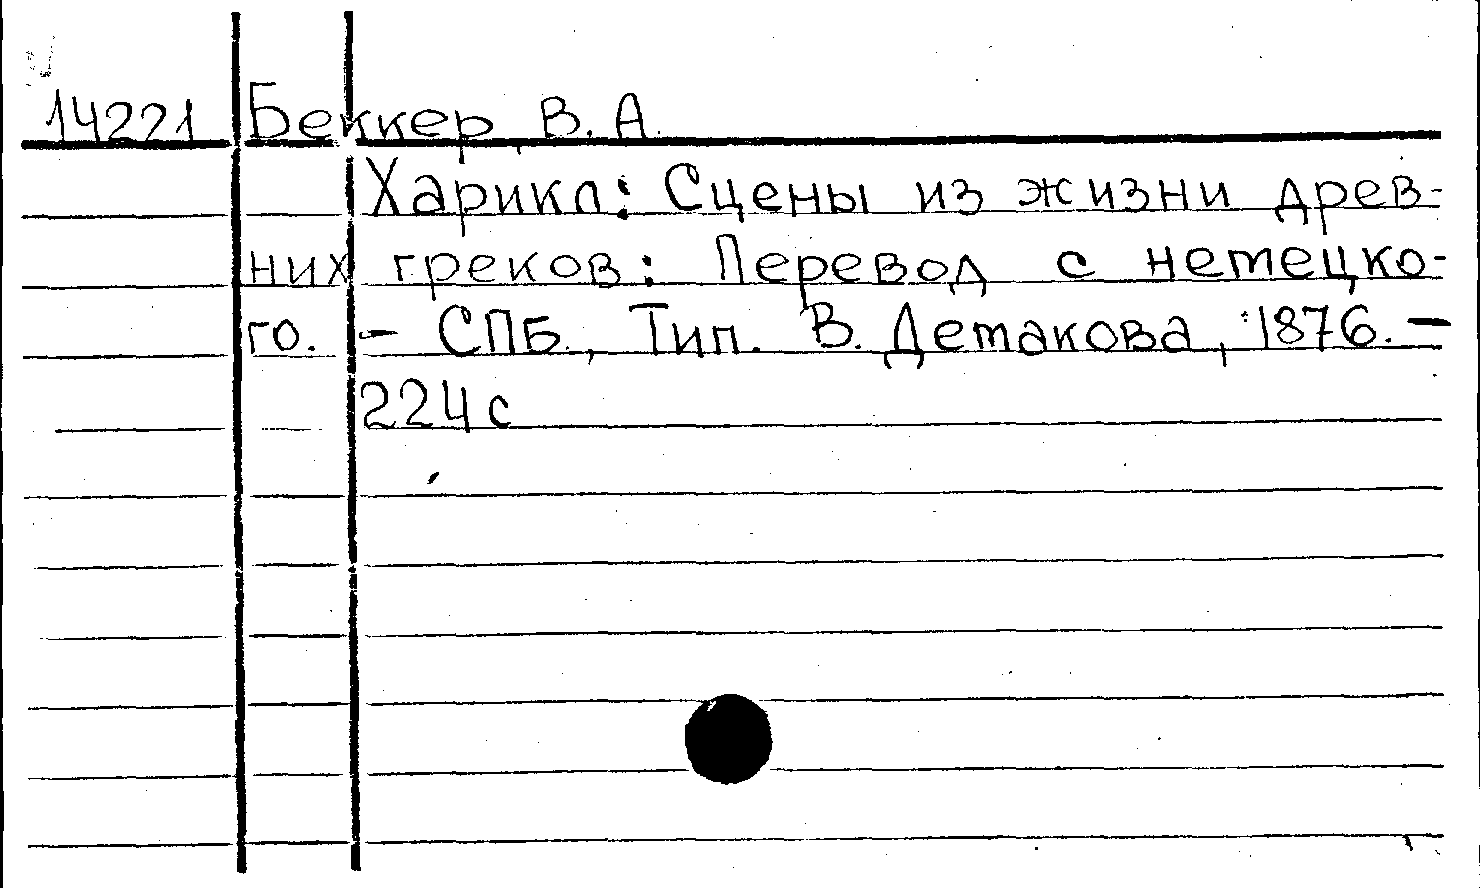 14221 Беккер, В. А.
Харикл: Сцены из жизни древ-
них греков: Перевод с немецко-
го. - СПБ., Тип. В. Демакова, 1876. -
224 с